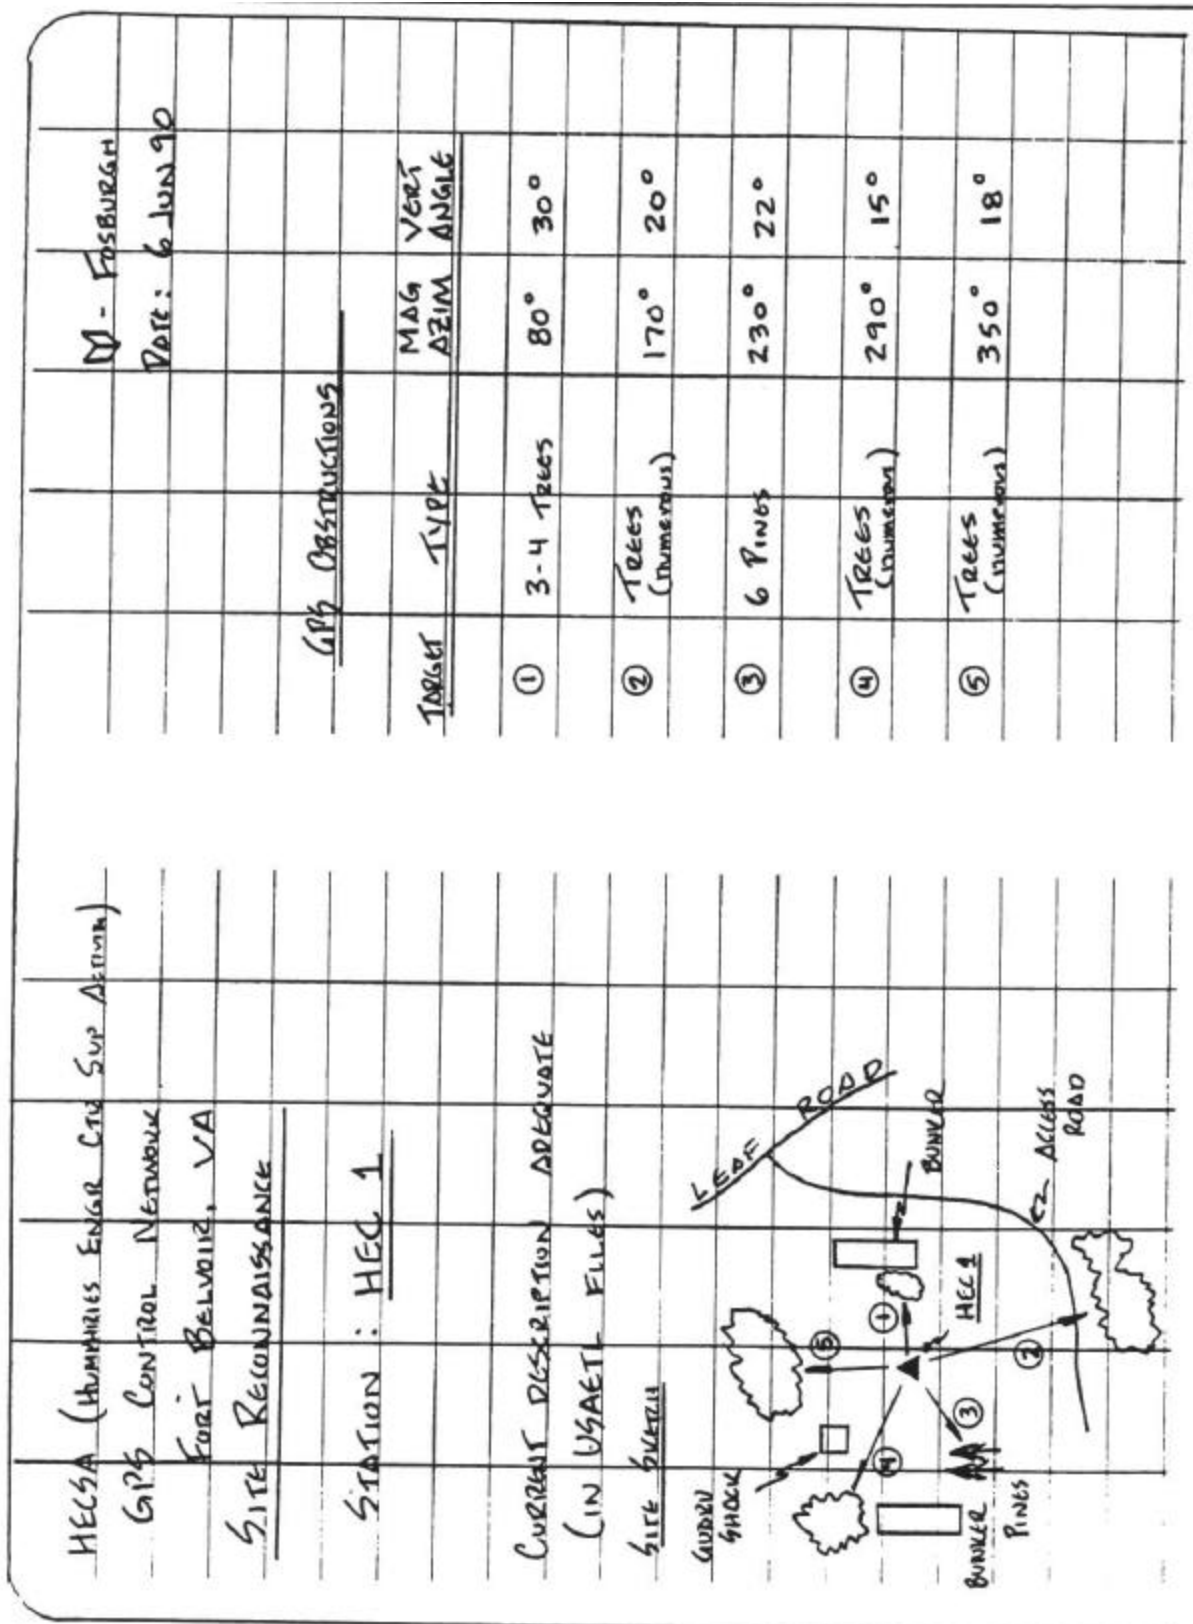 HECSA (HUMPHRIES ENGR CTR SUP ACTIVITY)
GPS CONTROL NETWORK
FORT BELVOIR, VA
SITE RECONNAISSANCE
STATION : HEC 1
CURRENT DESCRIPTION ADEQUATE
(IN USAETL FILES)
SITE SKETCH
LEAF ROAD
GUARD
SHACK
BUNKER
5
1
4
HEC 1
ACCESS
ROAD
3
2
BUNKER
PINES
- FOSBURGH
DATE: 6 JUN 90
GPS OBSTRUCTIONS
TARGET TYPE MAG AZIM VERT ANGLE
1 3-4 TREES 80° 30°
2 TREES 170° 20°
(numerous)
3 6 PINES 230° 22°
4 TREES 290° 15°
(numerous)
5 TREES 350° 18°
(numerous)